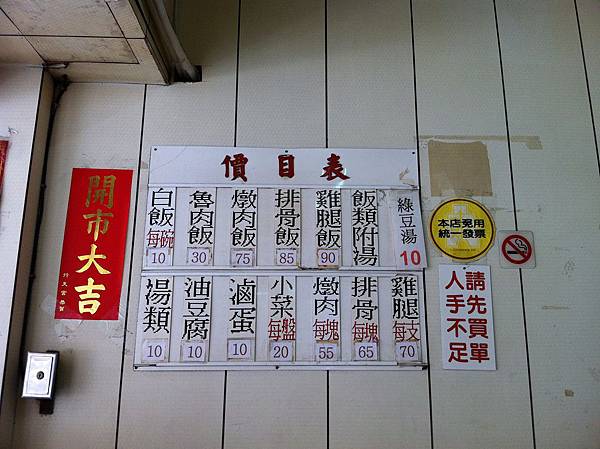 價目表
白飯 每碗 10
魯肉飯 30
燉肉飯 75
排骨飯 85
雞腿飯 90
飯類附湯
綠豆湯 10
湯類 10
油豆腐 10
滷蛋 10
小菜 每盤 20
燉肉 每塊 55
排骨 每塊 65
雞腿 每支 70
開市大吉
本店免用
統一發票
請先買單
人手不足